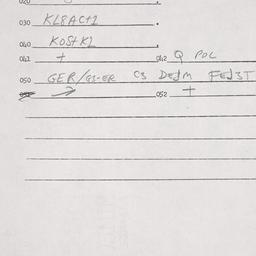 030 KL8AC+2 .
040 KOS+KL .
041 + 042 Q POL
050 GER/GS-ER C3 DEJM FEJ3T
052 +